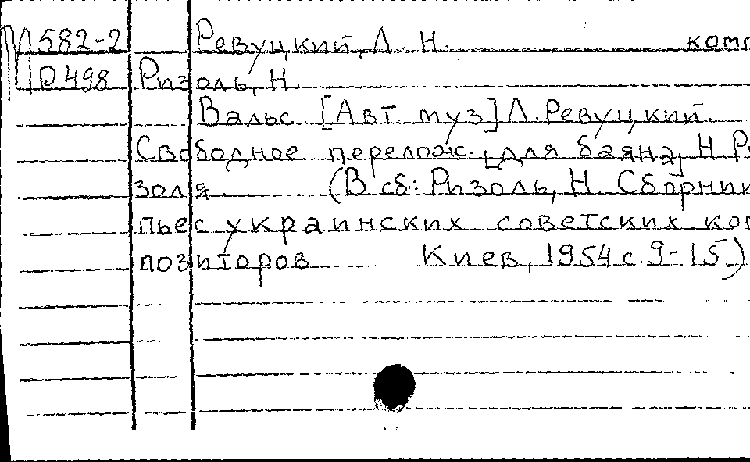 М 582-2 Ревуцкий, Л. Н. комп
Р498 Ризоль, Н.
Вальс [Авт. муз] Л. Ревуцкий.
Свободное перелож. [для баяна] Н Ри
золя (В сб: Ризоль, Н. Сборник
пьес украинских советских ком
позиторов Киев, 1954 с 9-15)